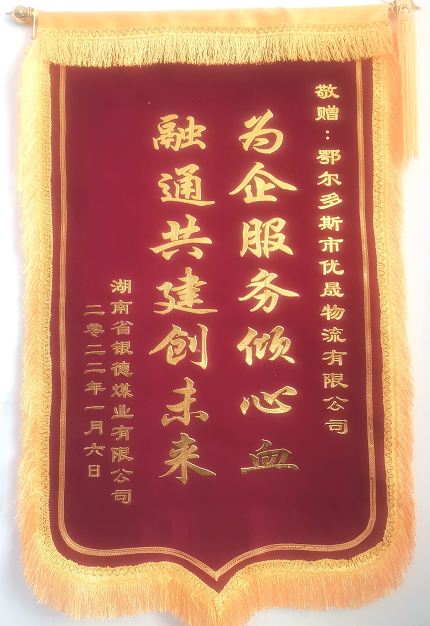 敬赠：鄂尔多斯市优晟物流有限公司
为企服务倾心血
融通共建创未来
湖南省银德煤业有限公司
二零二二年一月六日